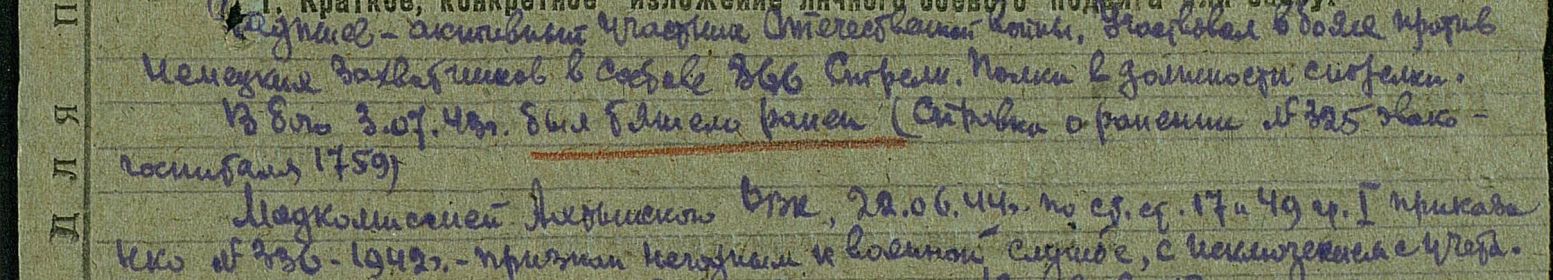 1. Краткое, конкретное изложение личного боевого подвига или заслуг
– активный участник Отечественной войны, Участвовал в боях против
Немецких Захватчиков в составе 866 Стрелк. Полка в должности стрелка.
В бою 3.07.43г. был тяжело ранен (Справка о ранении № 325 эвако-
госпиталя 1759)
Медкомиссией Ахтынского РВК, 22.06.44г. по ст.ст. 17 и 49 гр. I приказа
НКО № 336 - 1942г. - признан негодным к военной службе, с исключением с учета.
ДЛЯ П